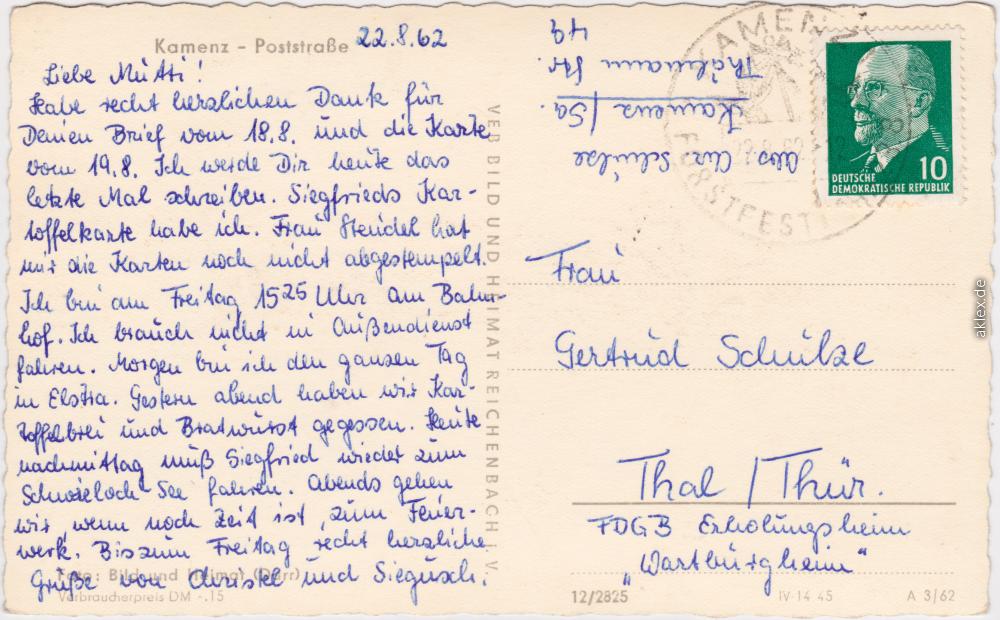 Kamenz - Poststraße
22.8.62
Liebe Mutti!
Habe recht herzlichen Dank für
Deinen Brief vom 18.8. und die Karte
vom 19.8. Ich werde Dir heute das
letzte Mal schreiben. Siegfrieds Kar-
toffelkarte habe ich. Frau Hendel hat
mir die Karten noch nicht abgestempelt.
Ich bin am Freitag 15²⁵ Uhr am Bahn-
hof. Ich brauch nicht in Außendienst
fahren. Morgen bin ich den ganzen Tag
in Elstra. Gestern abend haben wir Kar-
toffelbrei und Bratwurst gegessen. Heute
nachmittag muß Siegfried wieder zum
See fahren. Abends gehen
wir, wenn noch Zeit ist, zum Feuer-
werk. Bis zum Freitag recht herzliche
Grüße von Christel und
Foto: Bild und Heimat (Dörr)
Verbraucherpreis DM -.15
VEB BILD UND HEIMAT REICHENBACH I. V.
Abs. Schulze
Kamenz/Sa.
Thälmann Str.
49
KAMENZ
22.8.62
FORSTFEST
DEUTSCHE
DEMOKRATISCHE REPUBLIK
10
Frau
Gertrud Schulze
Thal / Thür.
FDGB Erholungsheim
„Wartburgheim"
12/2825
IV-14-45
A 3/62
aklex.de